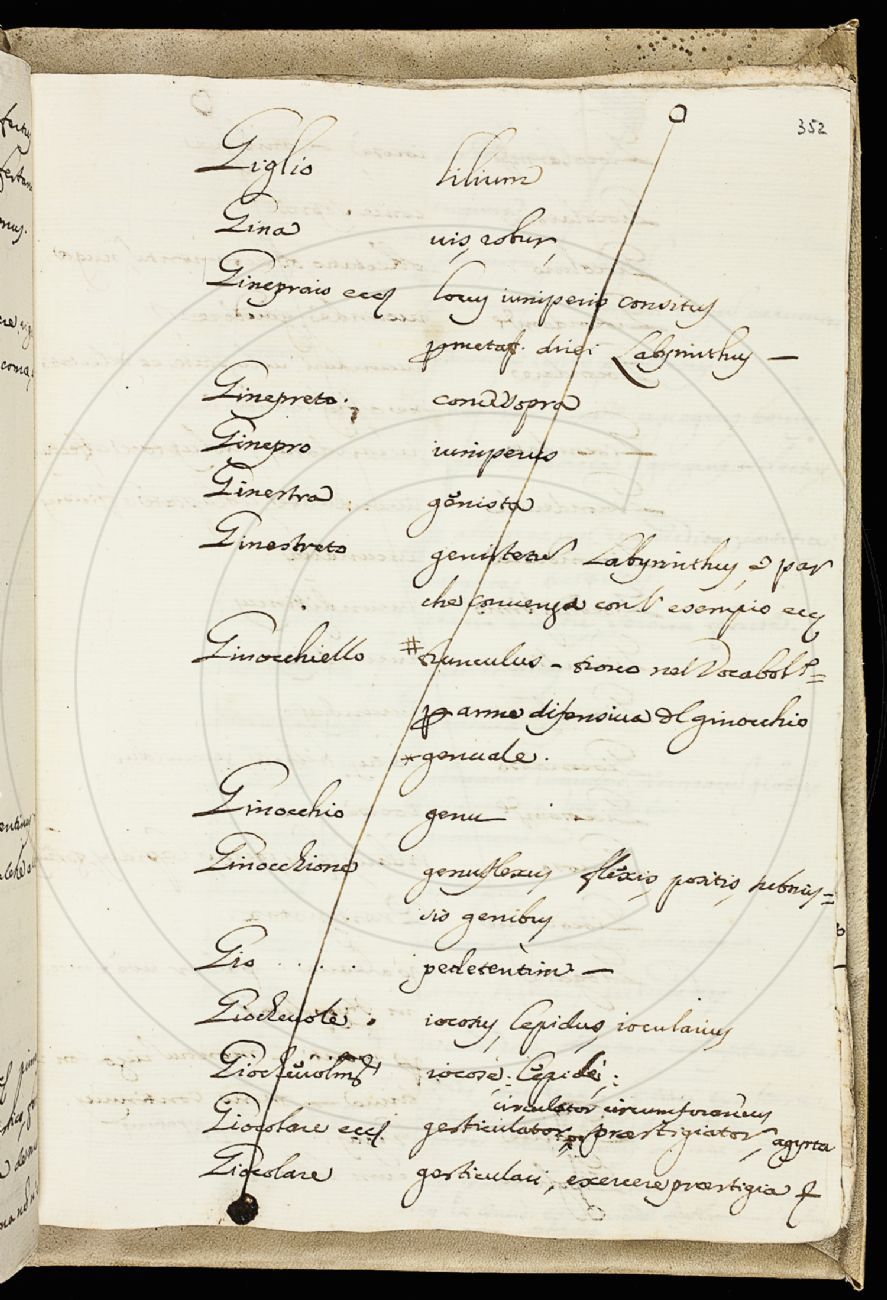 352
Giglio lilium
Gina uis, robur,
Ginepraio ecc. locus iuniperis consitus
p metaf. dirsi Labyrinthus —
Ginepreto. come sopra
Ginepro iuniperus
Ginestra genista
Ginestreto genistetū Labyrinthus, e par
che conuenga con l' esempio ecc.
Ginocchiello # trunculus - nel Vocabol.=
p arme difensiua dl ginocchio
* genuale.
Ginocchio genu
Ginocchione genuflexus flexis, positis, subnix=
sis genibus
Gio .... pedetentim —
Giocheuole. iocosus, lepidus, iocularius
Giocheuolmte iocose: lepide:
circulator circumforaneus
Giocolare ecc. gesticulator, præstigiator, agyrta
Giocolare gesticulari, exercere præstigia